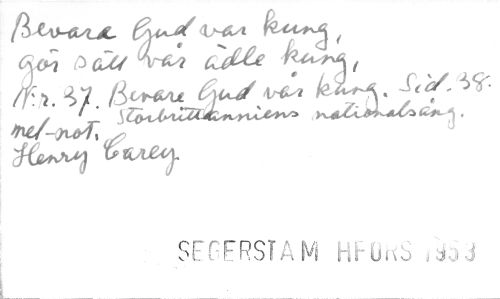 Bevara Gud var kung,
gör sätt vår ädle kung,
N:r. 37. Bevare Gud vår kung. Sid. 38.
mel-not. Storbrittanniens nationalsång.
Henry Carey.
SEGERSTAM HFORS 1953